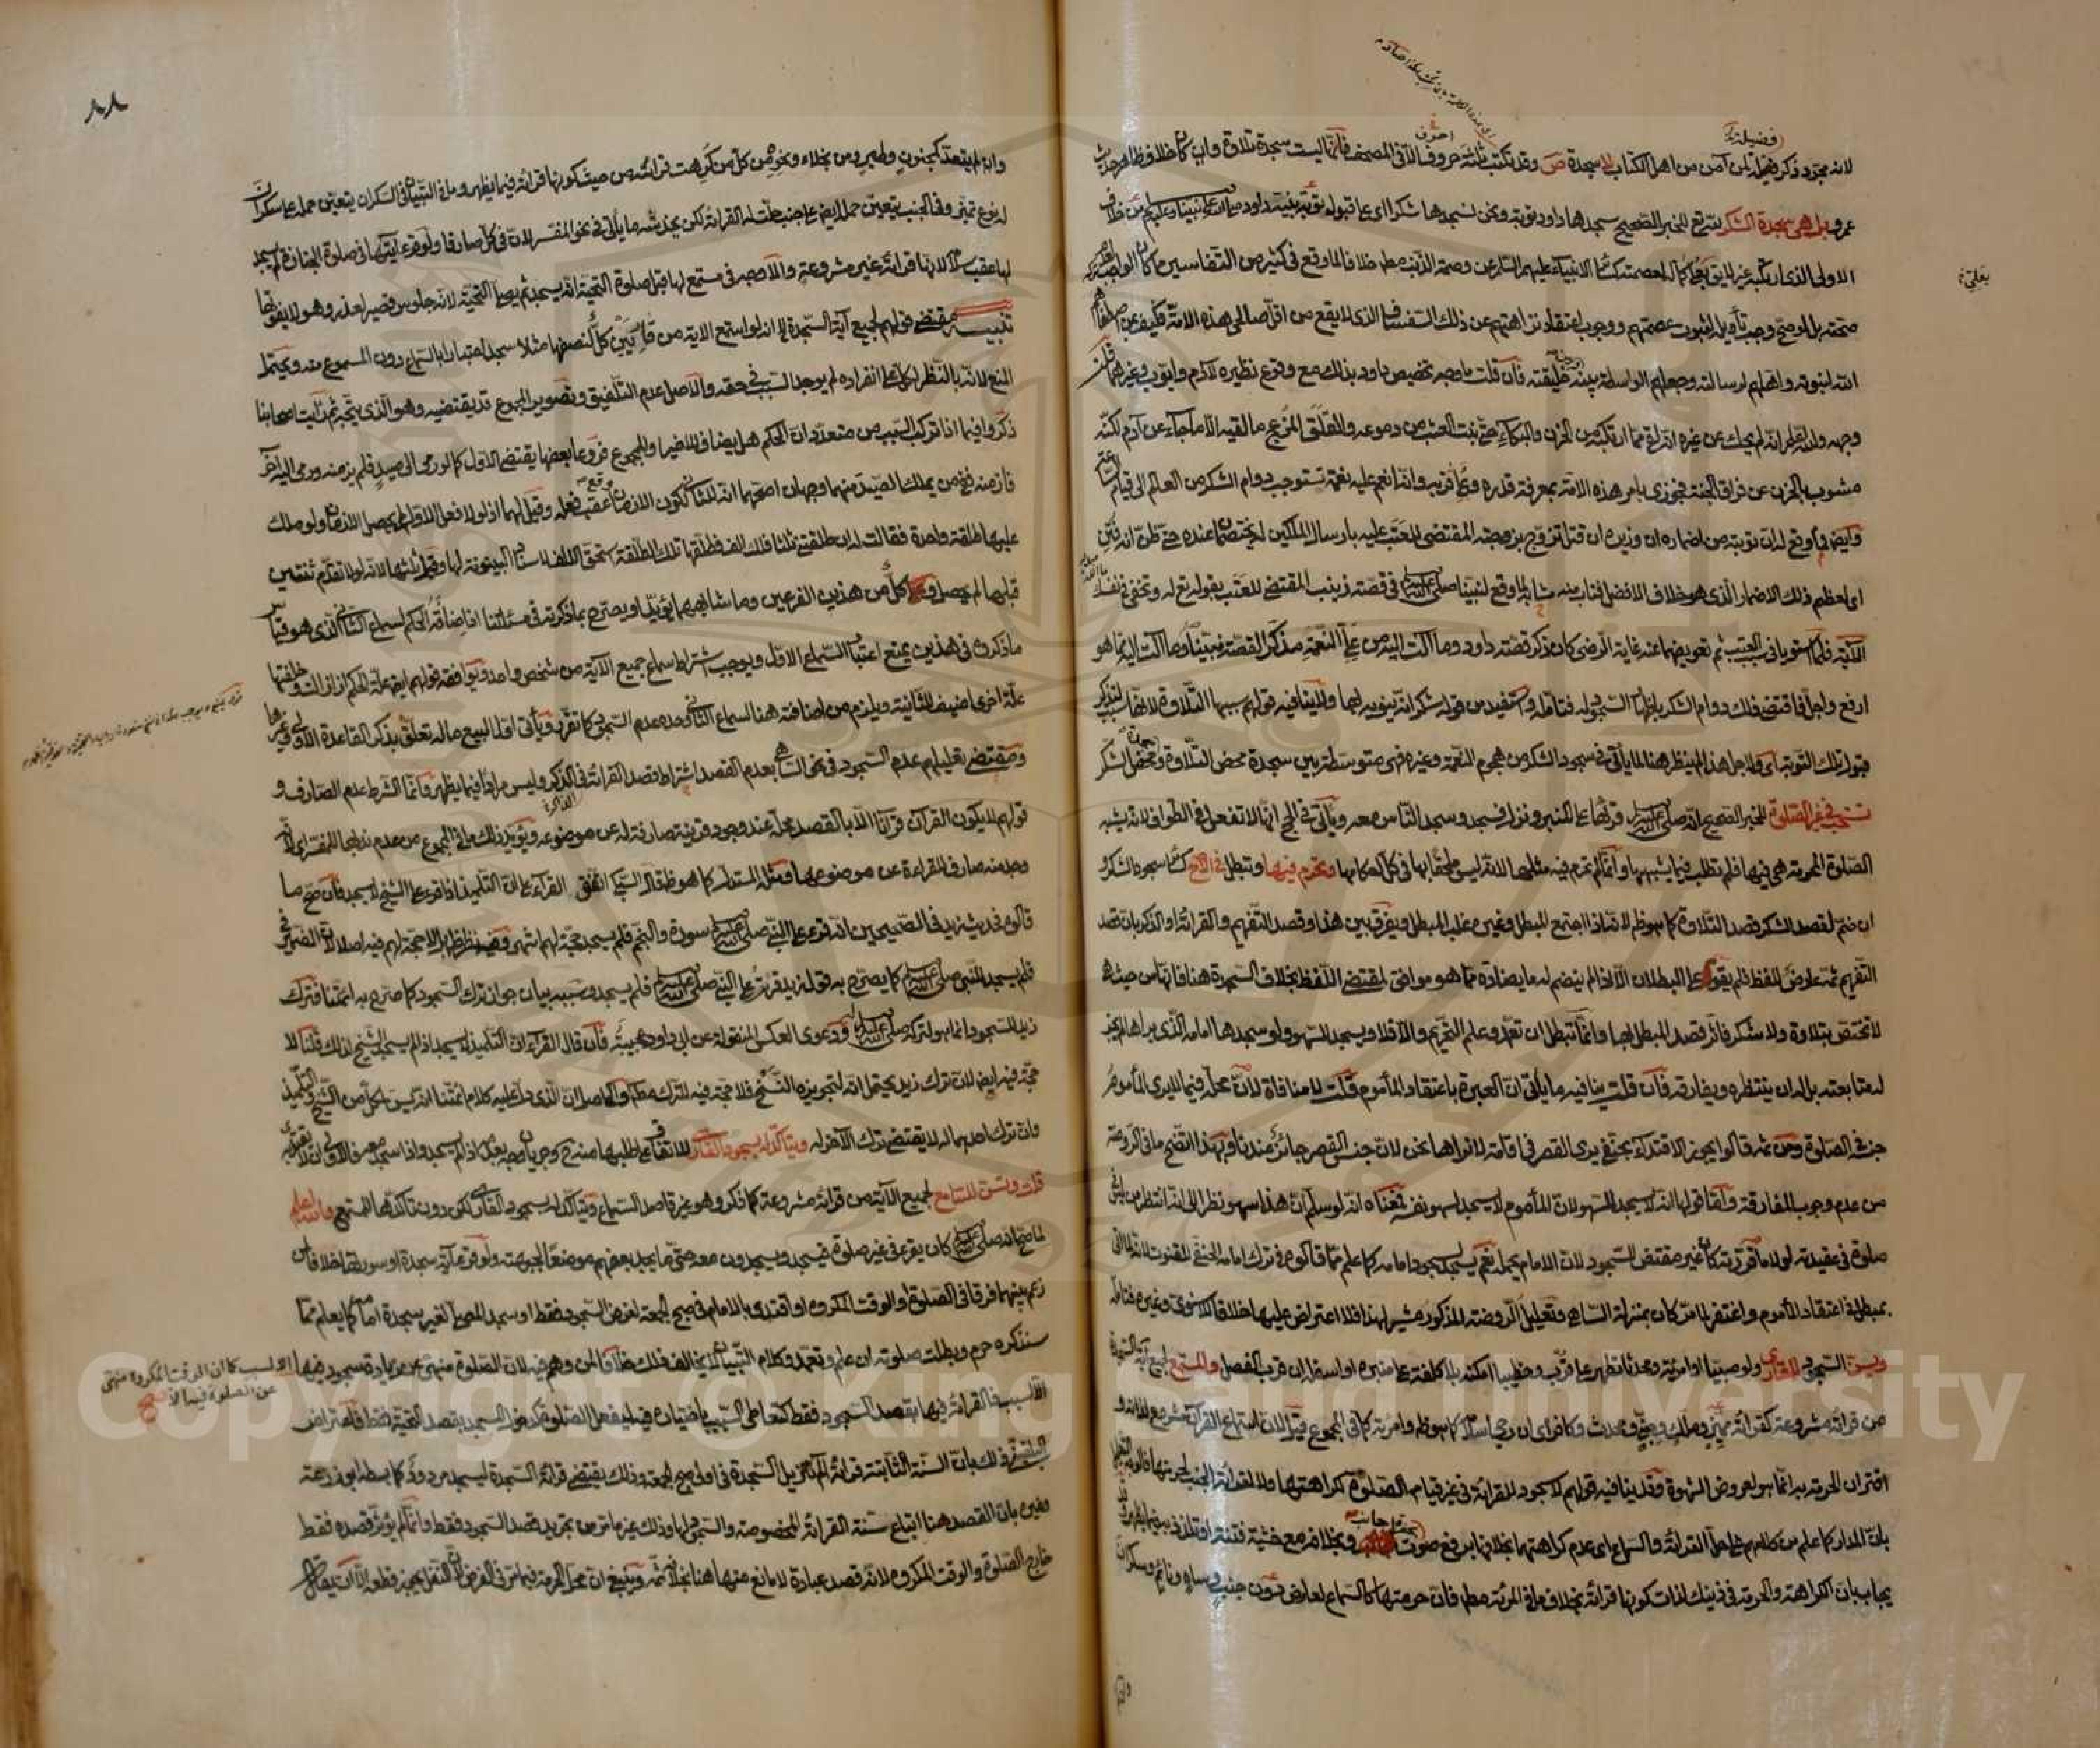 لانه مجرد ذكر فضيلة لمن آمن من اهل الكتاب لا سجدة ص وقد تكتب ثلاثة حروف الا في المصحف فانها ليست سجدة تلاوة وان كان خلاف ظاهر حديث
عمرو بل هي سجدة الشكر لله تع للخبر الصحيح سجدها داود توبة ونحن نسجدها شكرا اي على قبول توبة نبيه داود صلى الله على نبينا وعليه من خلاف
الاولى الذي ارتكبه غير لايق بعلي كماله لعصمته كسائر الانبياء عليهم السلام عن وصمة الذنب مطلقا خلافا لما وقع في كثير من التفاسير مما كان الواجب تركه
صحته بل لو صح وجب تأويله لثبوت عصمتهم ووجوب اعتقاد نزاهتهم عن ذلك السفساف الذي لا يقع من اقل صالحي هذه الامة فكيف بمن اصطفاهم
الله لنبوته واهلهم لرسالته وجعلهم الواسطة بينه وبين خليقته فان قلت ما وجه تخصيص داود بذلك مع وقوع نظيره لآدم وايوب وغيرهما قلت
وجهه والله اعلم انه لم يحك عن غيره انه لقي مما ارتكبه من الحزن والبكاء حتى نبت العشب من دموعه والقلق المزعج ما لقيه الا ما جاء عن آدم لكنه
مشوب بالحزن على فراق الجنة فجوزي بامر هذه الامة بمعرفة قدره وعلي قربه وانه انعم عليه نعمة تستوجب دوام الشكر من العالم الى قيام الساعة
وايضا فما وقع له ان توبته من اضماره ان وزيره ان قتل تزوج بزوجته المقتضي للعتب عليه بارسال الملكين ليختصما عنده حتى ظن انه فتن
اي لعظم ذلك الاضمار الذي هو خلاف الافضل فتاب منه مشابه لما وقع لنبينا صلى الله عليه وسلم في قصة زينب المقتضي للعتب بقوله تع له وتخفي في نفسك
الآية فلما استويا في سبب العتب ثم تعويضهما عنه غاية الرضى كان ذكر قصة داود وما آلت اليه من علي النعمة مذكرا لقصة نبينا وما آلت اليه مما هو
ارفع واجل فاقتضى ذلك دوام الشكر باظهار السجود له فتأمله واستفيد من قوله شكرا انه ينويه بها ولا ينافيه قولهم سببها التلاوة لانها سبب لتذكر
قبول تلك التوبة اي ولاجل هذا لم ينظر هنا لما يأتي في سجود الشكر من هجوم النعمة وغيره فهي متوسطة بين سجدة محض التلاوة ومحض الشكر
تستحب في غير الصلوة للخبر الصحيح انه صلى الله عليه وسلم قرأها على المنبر ونزل فسجد وسجد الناس معه ويأتي في الحج انها لا تفعل في الطواف لانه يشبه
الصلوة المحرمة هي فيها فلم تطلب فيما يشبهها وانما لم تحرم فيه مثلها لانه ليس ملحقا بها في كل احكامها وتحرم فيها وتبطل في الاصح كسائر سجود الشكر و
ان ضم لقصد الشكر قصد التلاوة كما هو ظاهر لانه اذا اجتمع المبطل وغيره غلب المبطل ويفرق بين هذا وقصد التفهيم والقراءة او الذكر بان قصد
التفهيم ثمة عارض للفظ فلم يقو على البطلان الا اذا لم ينضم له ما يضاده مما هو موافق لمقتضى اللفظ بخلاف السجدة هنا فانها من حيث هي
لا تختص بتلاوة ولا شكر فاثر قصد المبطل بها وانما تبطل ان تعمد وعلم التحريم والا فلا ويسجد للسهو ولو سجدها امامه الذي يراها لم يجز
له متابعته بل له ان ينتظره ويفارقه فان قلت ينافيه ما يأتي ان العبرة باعتقاد المأموم قلت لا منافاة لان محله فيما لا يرى المأموم
جنسه في الصلوة ومن ثمة قالوا يجوز الاقتداء بحنفي يرى القصر في اقامة لا نراها نحن لان جنس القصر جائز عندنا وبهذا اتضح ما في الروضة
من عدم وجوب المفارقة واما قولها انه لا يسجد للسهو لان المأموم لا يسجد لسهو نفسه فمعناه انه لو سلم ان هذا سهو نظرا الى انه انتظر من ليس في
صلوة في عقيدته لولا ما قررته كان غير مقتض للسجود لان الامام يحمله نعم يسجد لسجود امامه كما علم مما قالوه في ترك امامه الحنفي للقنوت لانه لما اتى
بمبطل في اعتقاد المأموم واغتفر لما مر كان بمنزلة الساهي وتعليل الروضة المذكور مشير لهذا فلا اعتراض عليها خلافا للاسنوي وغيره فتأمله
ويسن السجود للقارئ ولو صبيا او امرأة ومحدثا تطهر على قرب وخطيبا امكنه بلا كلفة على منبره او اسفله ان قرب الفصل والمستمع لجميع آية السجدة
من قراءة مشروعة كقراءة مميز وملك وجني ومحدث وكافر اي ان رجي اسلامه كما هو ظاهر وامرأة كما في المجموع قيل لان استماع القرآن مشروع لذاته و
اقتران الحرمة به انما هو لعروض الشهوة وقد ينافيه قولهم لا سجود لقراءة في غير قيام الصلوة لكراهتها ولا لقراءة الجنب لحرمتها
بان المدار كما علم من كلامهم على حل القراءة والسماع اي عدم كراهتهما بخلافها برفع صوت بحضرة اجانب وبخلافه مع خشية فتنة او تلذذ به
يجاب بان الكراهة والحرمة في ذينك لذات كونها قراءة بخلاف ما في المرأة مطلقا فان حرمتها كالسماع لعارض دون جنب وساه ونائم وسكران
بعلي
٨٨
وان لم يتعد كمجنون وطير ومن بخلاء ونحوهم من كل من كرهت قراءته من حيث كونها قراءة فيما يظهر وما في التبيان في السكران يتعين حمله على سكران
له نوع تمييز وفي الجنب يتعين حمله ايضا على جنب حلت له القراءة لكن يخدشه ما يأتي في نحو المفسر لان في كل صارفا ولو قرء آيتها في صلوة الجنازة لم يسجد
لها عقب سلامه لانها قراءة غير مشروعة والاوجه في مستمع لها قبل صلوة التحية انه يسجد ثم يصلي التحية لانه جلوس قصير لعذر وهو لا يفوتها
تنبيه مقتضى قولهم لجميع آية السجدة انه لو استمع الآية من قارئين كل لنصفها مثلا سجد اعتبارا بالسماع دون المسموع منه ويحتمل
المنع لانه بالنظر لكل على انفراده لم يوجد السبب في حقه والاصل عدم التلفيق وتصوير المجموع قد يقتضيه وهو الذي يتجه ثم رأيت اصحابنا
ذكروا فيما اذا تركب السبب من متعدد ان الحكم هل يضاف للاخير او للمجموع فروعا بعضها يقتضي الاول كما لو رمى الى صيد فلم يزمنه ورمى اليه آخر
فازمنه فمن يملك الصيد منهما وجهان اصحهما انه للثاني لكون الازمان وقع عقب فعله وقيل لهما اذ لولا فعل الاول لم يحصل الازمان ولو ملك
عليها طلقة واحدة فقالت له ان طلقتني ثلاثا فلك الف فطلقها تلك الطلقة استحق الالف لاسناد البينونة لها وقيل ثلثها لانه لولا تقدم ثنتين
قبلها لم يحصل وكل من هذين الفرعين وما شابههما يؤيد بل يصرح بما ذكرته في مسئلتنا اذ اضافة الحكم لسماع الثاني الذي هو قياس
ما ذكروه في هذين يمنع اعتبار السماع الاول ويوجب اشتراط سماع جميع الآية من شخص واحد ويوافقه قولهم ايضا علة الحكم اذا زالت وخلفتها
علة اخرى اضيف للثانية ويلزم من اضافته هنا السماع الثاني وحده عدم السجود كما تقرر ويأتي اول البيع ما له تعلق بذكر القاعدة الاولى وغيرها
ومقتضى تعليلهم عدم السجود في نحو الساهي بعدم القصد اشتراط قصد القراءة في الذاكر وليس مرادا فيما يظهر وانما الشرط عدم الصارف و
قولهم لا يكون القرآن قرآنا الا بالقصد محله عند وجود قرينة صارفة له عن موضوعه ويؤيد ذلك ما في المجموع من عدم ندبها للمفسر اي لانه
وجد منه صارف للقراءة عن موضوعها ومثله المستدل كما هو ظاهر قال السبكي اتفق القراء على ان التلميذ اذا قرء على الشيخ لا يسجد فان صح ما
قالوه فحديث زيد في الصحيحين انه قرء على النبي صلى الله عليه وسلم سورة والنجم فلم يسجد حجة لهم انتهى وفيه نظر ظاهر بل لا حجة لهم فيه اصلا لان الضمير في
فلم يسجد للنبي صلى الله عليه وسلم كما يصرح به قول زيد قرأت على النبي صلى الله عليه وسلم فلم يسجد وسببه بيان جواز ترك السجود كما صرح به ائمتنا فترك
زيد للسجود انما هو لتركه صلى الله عليه وسلم ودعوى العكس المنقولة عن ابي داود عجيبة فان قال القراء ان التلميذ لا يسجد اذا لم يسجد الشيخ لذلك قلنا لا
حجة فيه ايضا لان ترك زيد يحتمل انه لتجويزه النسخ فلا حجة فيه للترك مطلقا والحاصل ان الذي دل عليه كلام ائمتنا انه يسن لكل من الشيخ والتلميذ
وان ترك احدهما له لا يقتضي ترك الآخر له ويتأكد له بسجود القارئ للاتفاق على طلبها منه حينئذ وجريان وجه بعدمه اذا لم يسجد واذا سجد معه فالاولى ان لا يقتدي به
قلت ويسن للسامع لجميع الآية من قراءة مشروعة كما ذكر وهو غير قاصد السماع ويتأكد له بسجود القارئ لكن دون تأكدها للمستمع والله اعلم
لما صح انه صلى الله عليه وسلم كان يقرء في غير صلوة فيسجد ويسجدون معه حتى ما يجد بعضهم موضعا لجبهته ولو قرء آية سجدة او سورتها خلافا لمن
زعم بينهما فرقا في الصلوة او الوقت المكروه او اقتدى بالامام في صبح الجمعة لغرض السجود فقط او سجد المصلي لغير سجدة امامه كما يعلم مما
سنذكره حرم وبطلت صلوته ان علم وتعمد وكلام التبيان لا يخالف ذلك خلافا لمن وهم فيه لان الصلوة منهي عن زيادة سجود فيها الا لسبب كما ان الوقت المكروه منهي
عن الصلوة فيه الا لسبب
الا لسبب فالقراءة فيها بقصد السجود فقط كتعاطي السبب باختياره فيه ليفعل الصلوة كدخول المسجد بقصد التحية فقط فاعتراض
البلقيني ذلك بان السنة الثابتة قراءة الم تنزيل السجدة في اولى صبح الجمعة وذلك يقتضي قراءة السجدة ليسجد مردود كما بسطه ابو زرعة
وغيره بان القصد هنا اتباع سنة القراءة المخصوصة والسجود لها وذلك غير ما مر من تجريد قصد السجود فقط وانما لم يؤثر قصده فقط
خارج الصلوة والوقت المكروه لانه قصد عبادة لا مانع منها هنا بخلافه ثمة وينبغي ان محل الحرمة فيما مر في الفرض لان النفل يجوز قطعه الا ان يقال